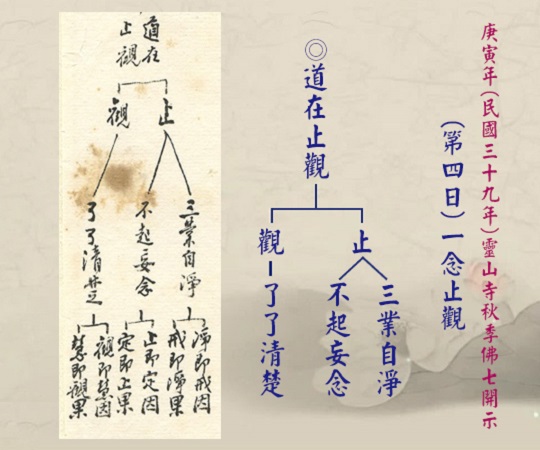 庚寅年(民國三十九年)靈山寺秋季佛七開示
(第四日)一念止觀
◎道在止觀
止
三業自淨
不起妄念
觀
了了清楚
道在
止觀
止
三業自淨
淨即戒因
戒即淨果
不起妄念
止即定因
定即止果
觀
了了清楚
觀即慧因
慧即觀果